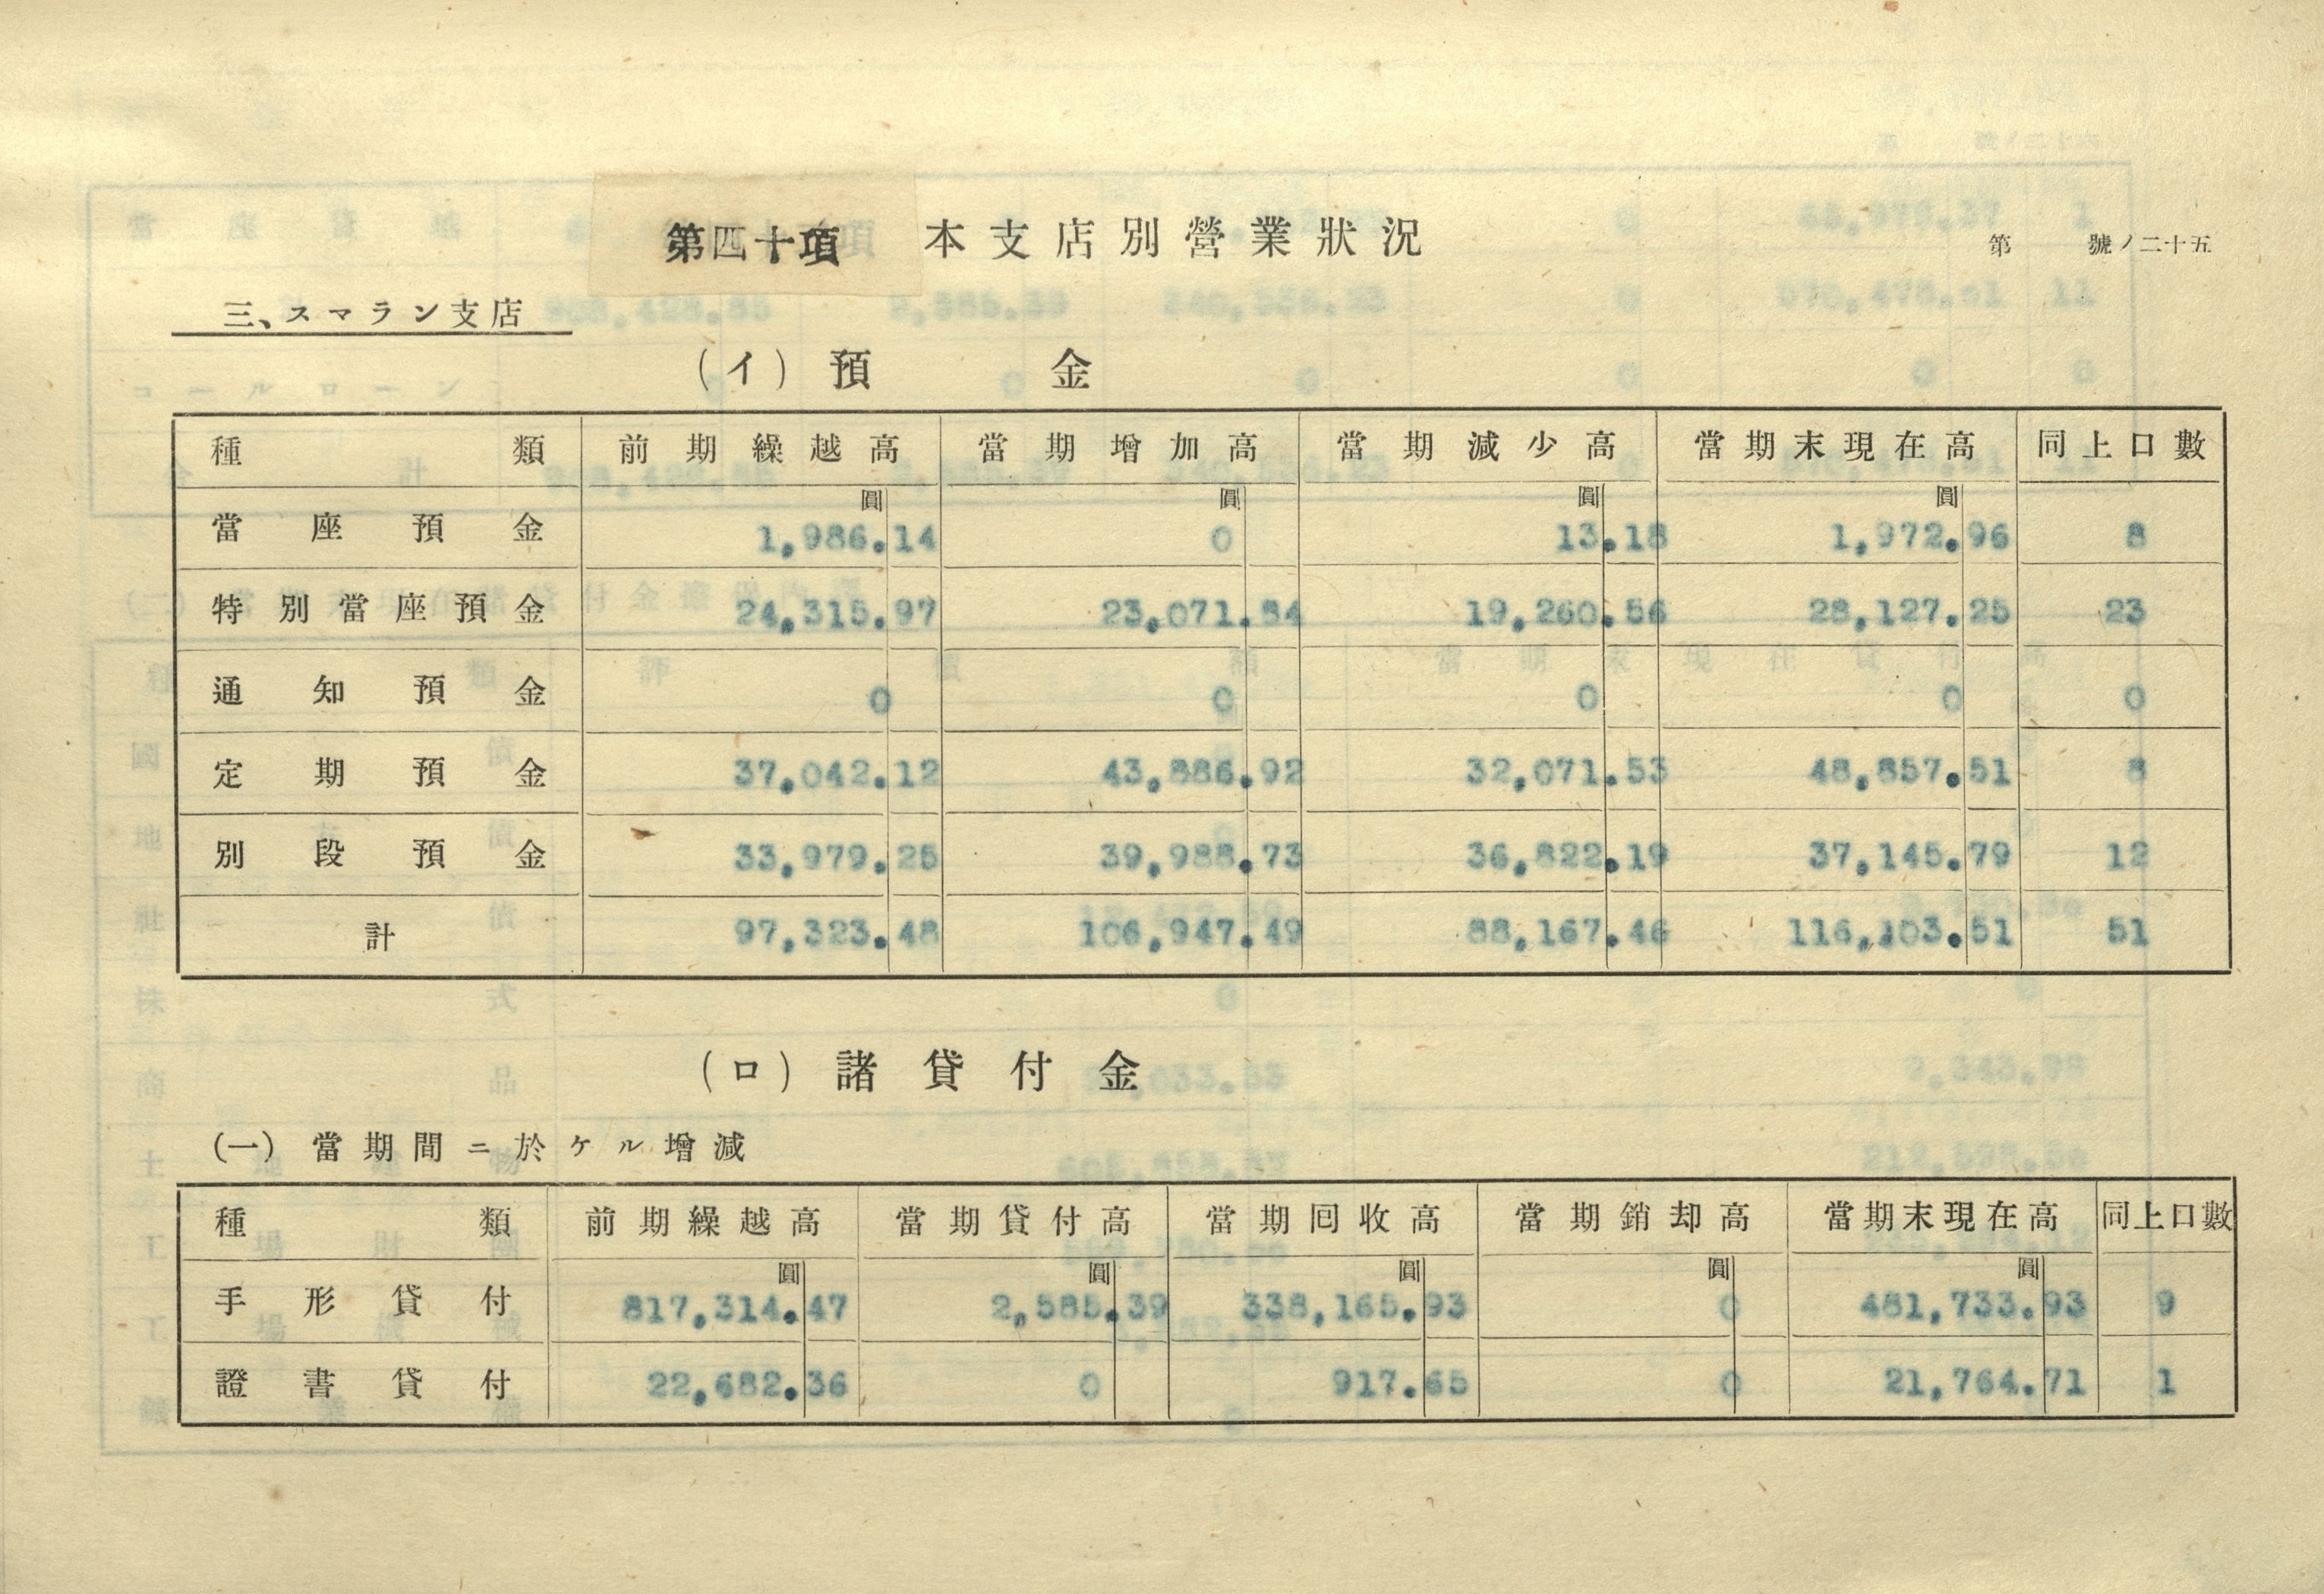 第四十項 本支店別營業狀況 第 號ノ二十五
三、スマラン支店
(イ) 預金
種類 前期繰越高 當期增加高 當期減少高 當期末現在高 同上口數
圓 圓 圓 圓
當座預金 1,986.14 0 13.18 1,972.96 8
特別當座預金 24,315.97 23,071.84 19,260.56 28,127.25 23
通知預金 0 0 0 0 0
定期預金 37,042.12 43,886.92 32,071.53 48,857.51 8
別段預金 33,979.25 39,988.73 36,822.19 37,145.79 12
計 97,323.48 106,947.49 88,167.46 116,103.51 51
(ロ) 諸貸付金
(一) 當期間ニ於ケル增減
種類 前期繰越高 當期貸付高 當期回收高 當期銷却高 當期末現在高 同上口數
圓 圓 圓 圓 圓
手形貸付 817,314.47 2,585.39 338,165.93 0 481,733.93 9
證書貸付 22,682.36 0 917.65 0 21,764.71 1